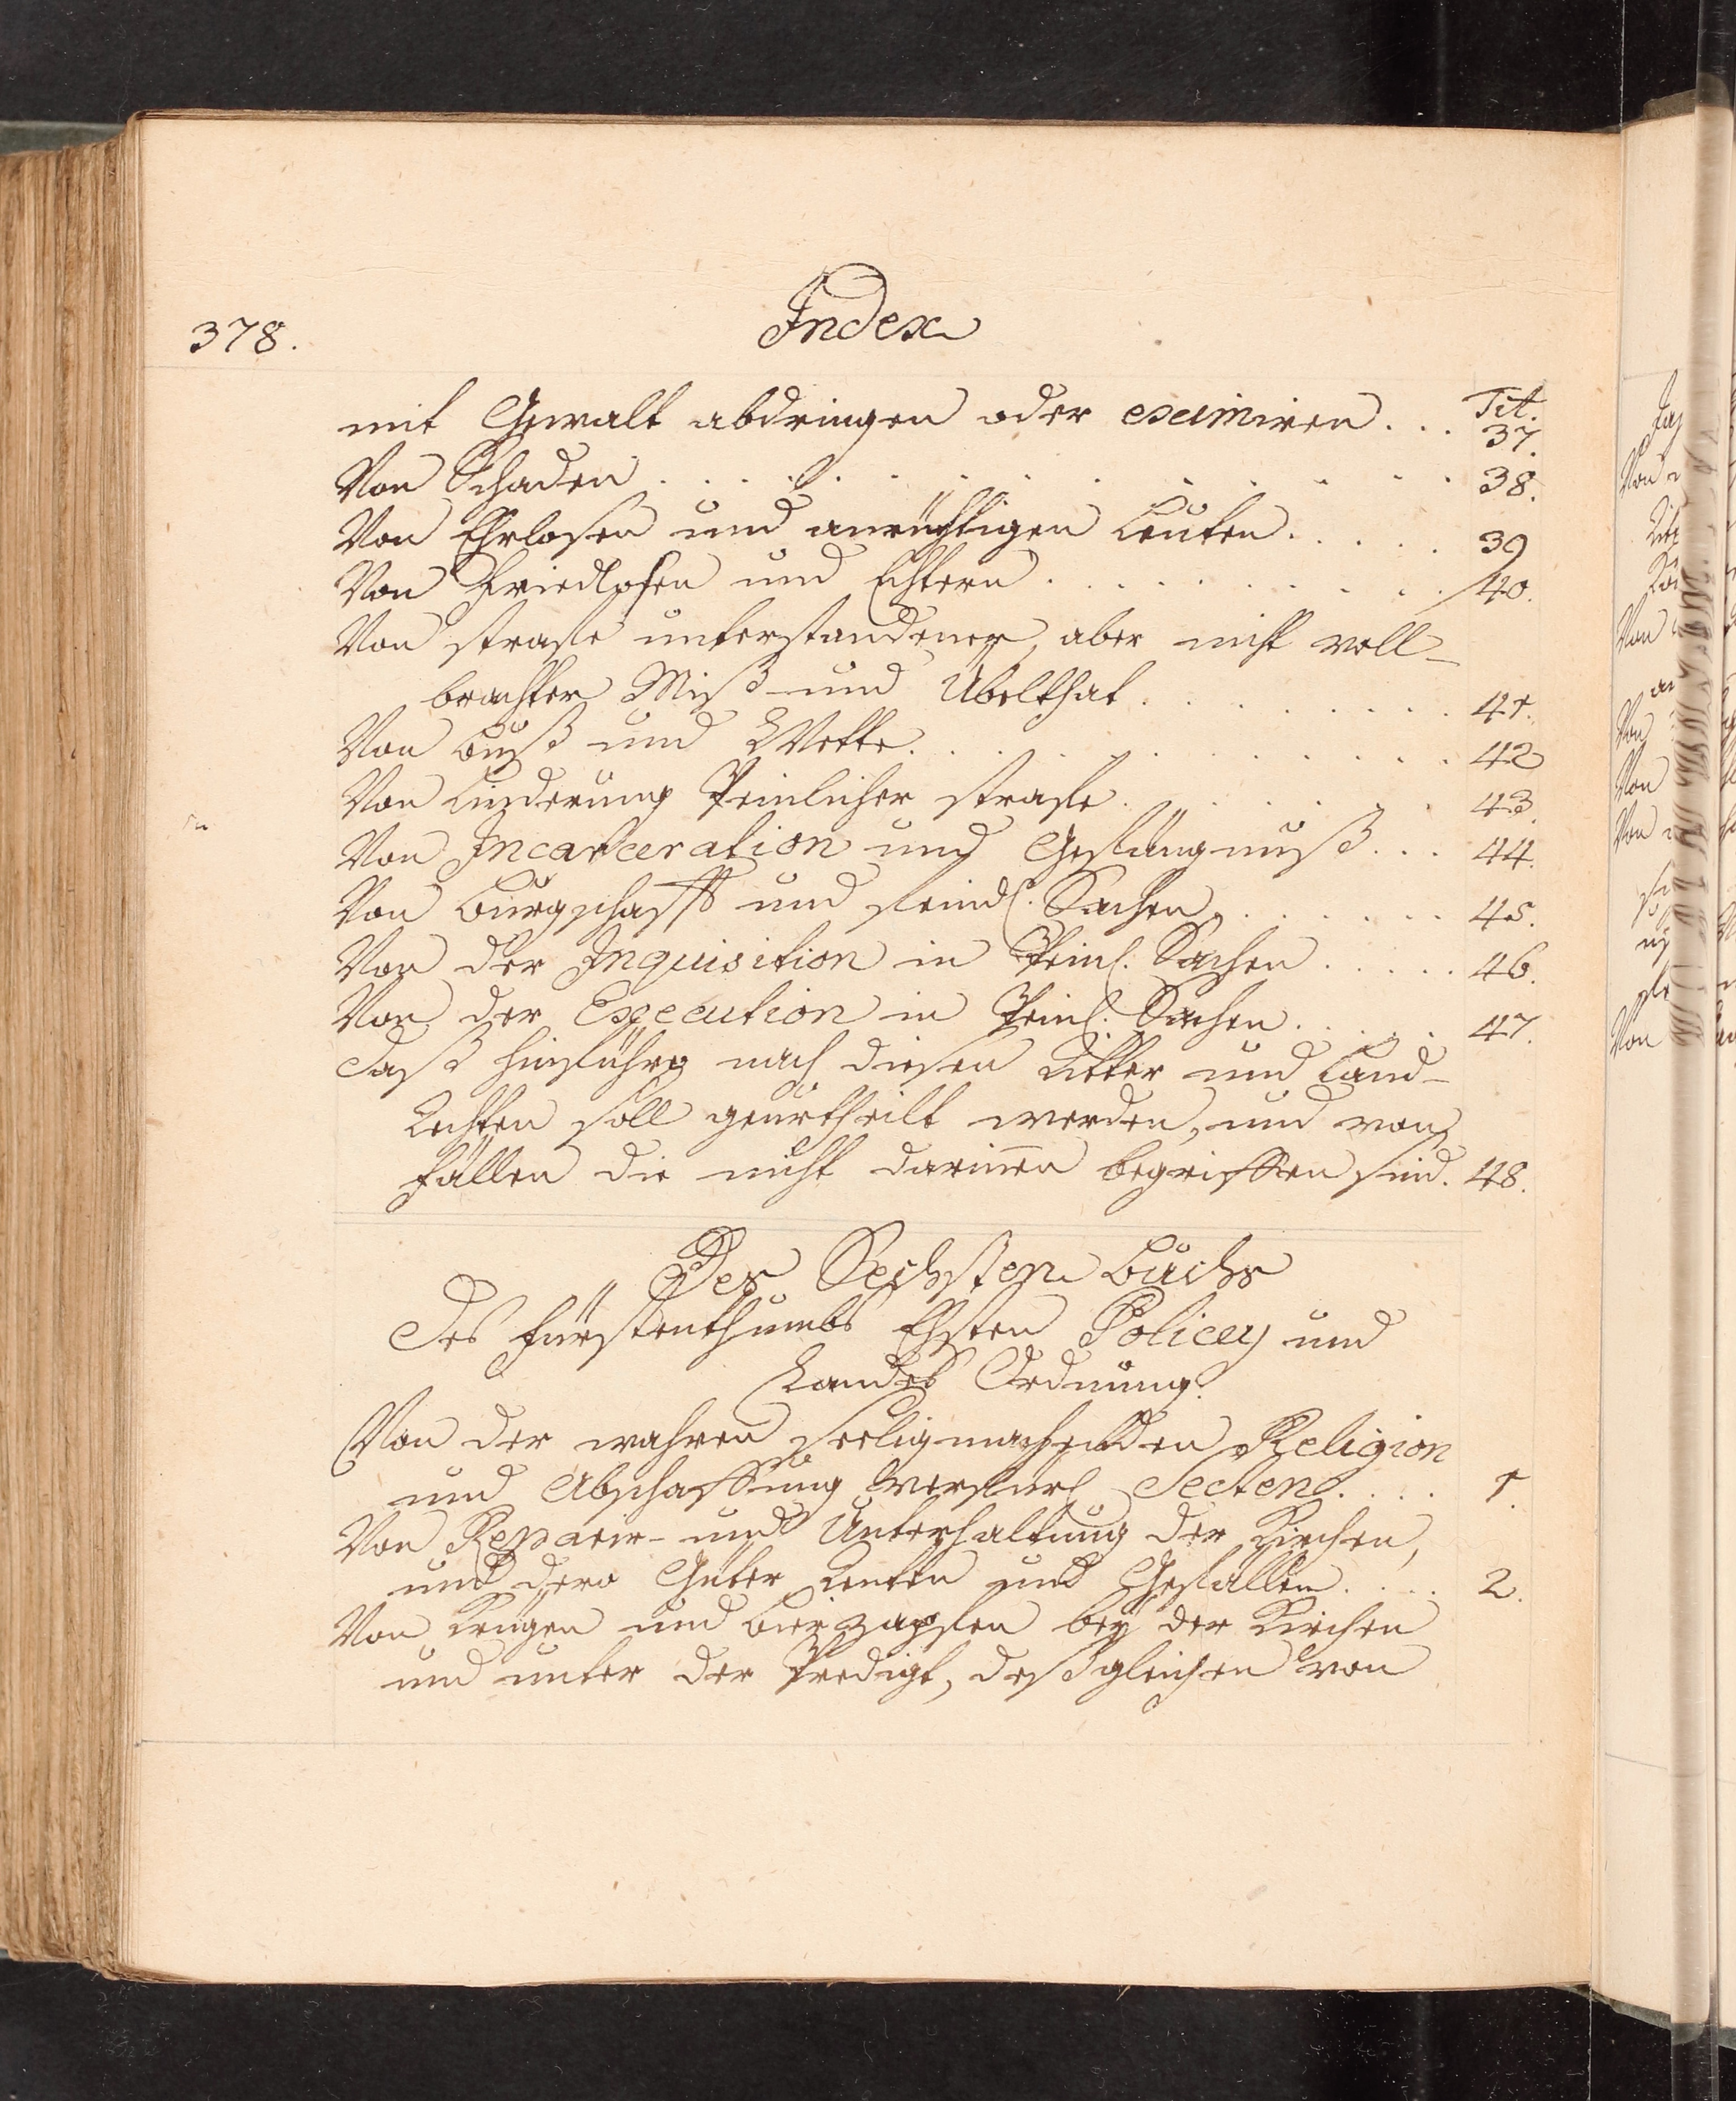 378.
Index
Tit.
mit Gewalt abdringen oder eximiren . . . 37.
Von Schaden . . . . . . . . . . . . 38.
Von Ehrlosen und anrüchtigen Leuten. . . . . 39
Von Friedlosen und Echtern . . . . . . . . 40.
Von strafe unterstandener, aber nicht voll-
brachter Miß- und Übelthat . . . . . . . . 41.
Von Buß und Wette. . . . . . . . . . 42
Von Linderung Peinlicher strafe . . . . . . 43.
Von Incarceration und Gefängnuß . . . 44.
Von Bürgschafft und Sachen . . . . . . 45.
Von der Inquisition in Peinl. Sachen . . . . . 46.
Von der Execution in Peinl. Sachen . . . . . 47.
Daß hinführo nach diesen Ritter und Land-
Rechten soll geurtheilt werden, und von
fällen die nicht darinnen begriffen sind. 48.
Des Sechsten Buchs
Des Fürstenthumbs Ehsten Policey und
Landes Ordnung.
Von der wahren seeligmachenden Religion
und Abschaffung Secten . . . . 1.
Von Reparir- und Unterhaltung der Kirchen,
und dero Güter Renten und Gefällen . . . . 2.
Von Krügen und Bierzapfen bey der Kirchen
und unter der Predigt, deßgleichen von